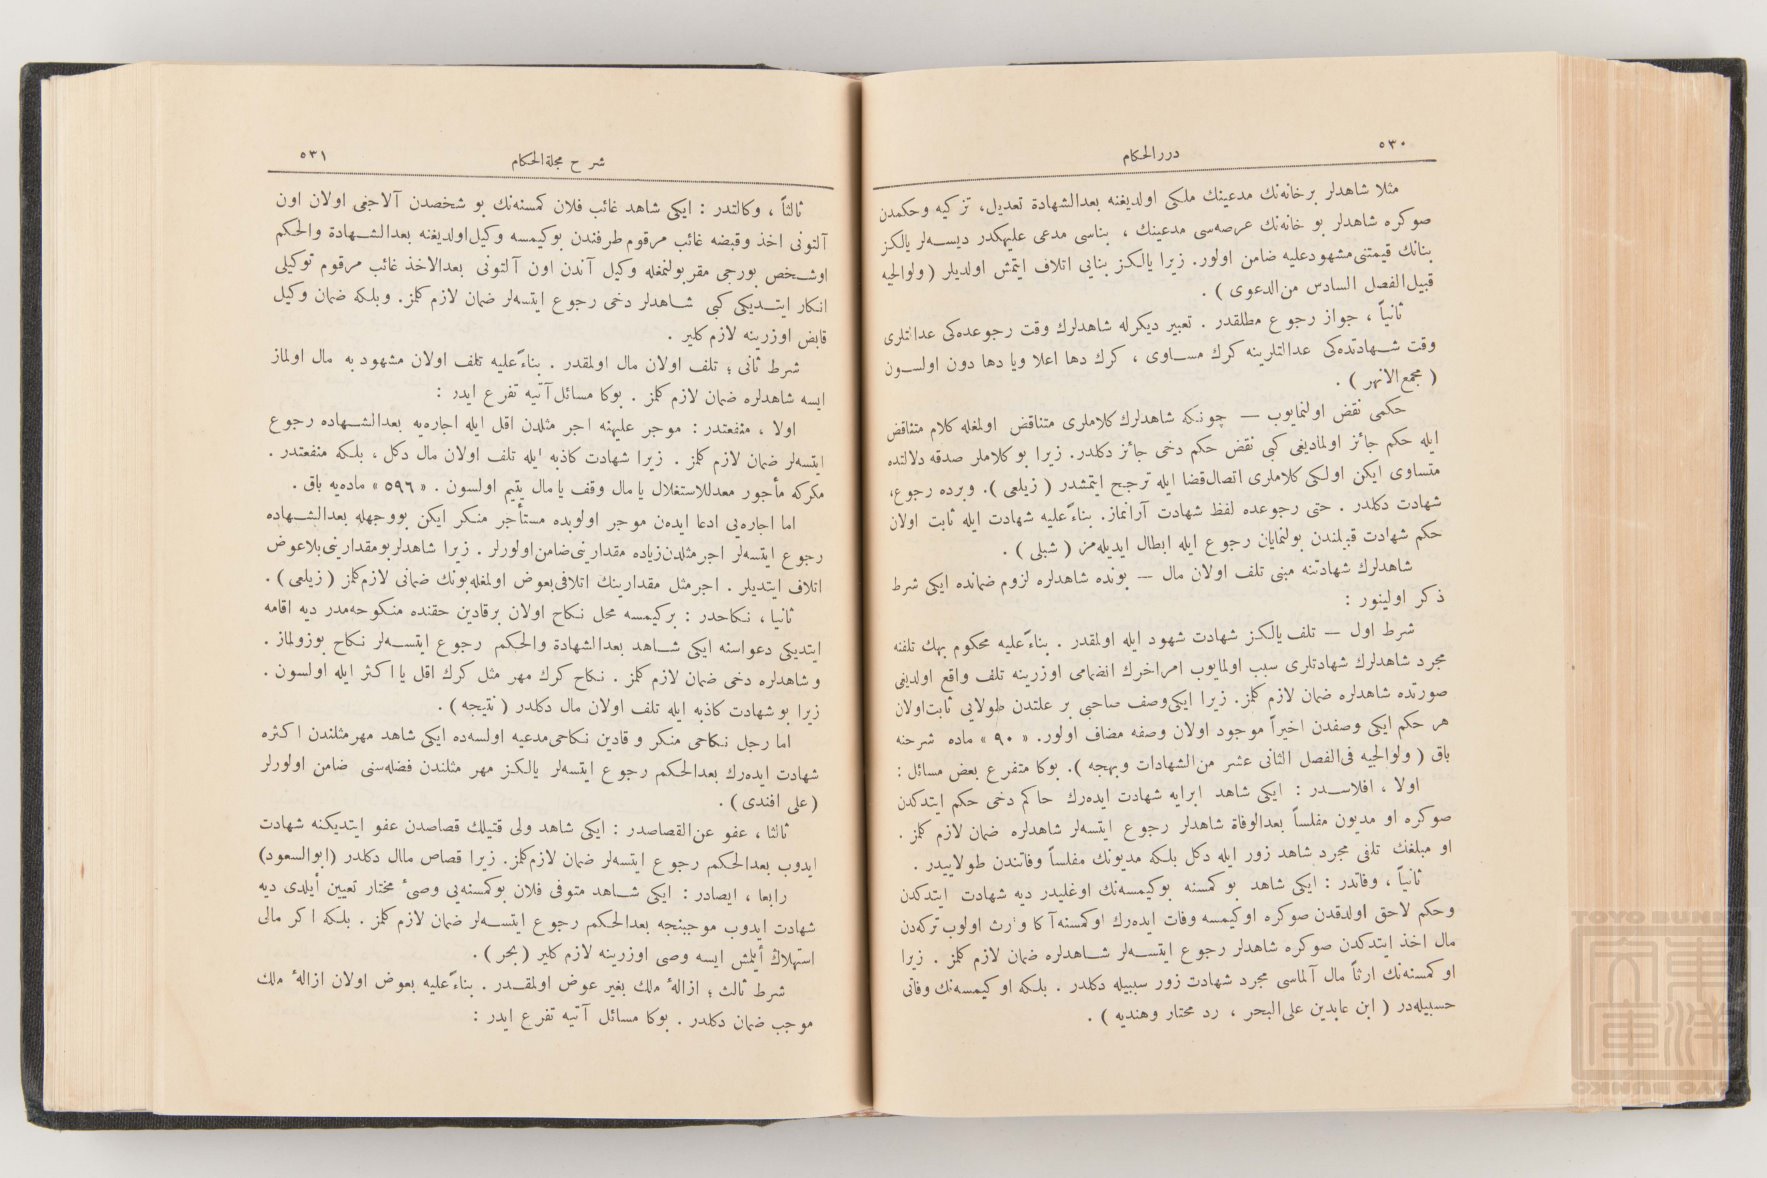 ٥٣٠
درر الحكام
مثلا شاهدلر برخانه‌نك مدعينك ملكى اولديغنه بعدالشهادة تعديل، تزكيه وحكمدن
صوكره شاهدلر بو خانه‌نك عرصه‌سى مدعينك ، بناسى مدعى عليهكدر ديسه‌لر يالكز
بنانك قيمتنى مشهودعليه ضامن اولور. زيرا يالكز بنايى اتلاف ايتمش اولديلر ( ولوالجيه
قبيل‌الفصل السادس من‌الدعوى ) .
ثانياً ، جواز رجوع مطلقدر . تعبير ديكرله شاهدلرك وقت رجوعده‌كى عدالتلرى
وقت شهادتده‌كى عدالتلرينه كرك مساوى ، كرك دها اعلا ويا دها دون اولسون
( مجمع‌الانهر ) .
حكمى نقض اولنمايوب — چونكه شاهدلرك كلاملرى متناقض اولمغله كلام متناقض
ايله حكم جائز اولماديغى كبى نقض حكم دخى جائز دكلدر. زيرا بو كلاملر صدقه دلالتده
متساوى ايكن اولكى كلاملرى اتصال‌قضا ايله ترجح ايتمشدر ( زيلعى ). وبرده رجوع،
شهادت دكلدر . حتى رجوعده لفظ شهادت آرانماز. بناءً عليه شهادت ايله ثابت اولان
حكم شهادت قبيلندن بولنمايان رجوع ايله ابطال ايديله‌مز ( شبلى ) .
شاهدلرك شهادتنه مبنى تلف اولان مال — بونده شاهدلره لزوم ضمانده ايكى شرط
ذكر اولينور :
شرط اول — تلف يالكز شهادت شهود ايله اولمقدر . بناءً عليه محكوم بهك تلفنه
مجرد شاهدلرك شهادتلرى سبب اولمايوب امراخرك انضمامى اوزرينه تلف واقع اولديغى
صورتده شاهدلره ضمان لازم كلمز. زيرا ايكى‌وصف صاحبى بر علتدن طولايى ثابت‌اولان
هر حكم ايكى وصفدن اخيراً موجود اولان وصفه مضاف اولور. « ٩٠ » ماده شرحنه
باق ( ولوالجيه فى‌الفصل الثانى عشر من‌الشهادات وبهجه ). بوكا متفرع بعض مسائل :
اولا ، افلاسدر : ايكى شاهد ابرايه شهادت ايده‌رك حاكم دخى حكم ايتدكدن
صوكره او مديون مفلساً بعدالوفاة شاهدلر رجوع ايتسه‌لر شاهدلره ضمان لازم كلمز .
او مبلغك تلفى مجرد شاهد زور ايله دكل بلكه مديونك مفلساً وفاتندن طولاييدر .
ثانياً ، وفاتدر : ايكى شاهد بو كمسنه بوكيمسه‌نك اوغليدر ديه شهادت ايتدكدن
وحكم لاحق اولدقدن صوكره اوكيمسه وفات ايده‌رك اوكمسنه آكا وارث اولوب تركه‌دن
مال اخذ ايتدكدن صوكره شاهدلر رجوع ايتسه‌لر شاهدلره ضمان لازم كلمز . زيرا
او كمسنه‌نك ارثاً مال آلماسى مجرد شهادت زور سببيله دكلدر . بلكه او كيمسه‌نك وفاتى
حسبيله‌در ( ابن عابدين على‌البحر ، رد محتار وهنديه ) .
٥٣١
شرح مجلة الحكام
ثالثاً ، وكالتدر : ايكى شاهد غائب فلان كمسنه‌نك بو شخصدن آلاجغى اولان اون
آلتونى اخذ وقبضه غائب مرقوم طرفندن بوكيمسه وكيل‌اولديغنه بعدالشهادة والحكم
اوشخص بورجى مقر بولنمغله وكيل آندن اون آلتونى بعدالاخذ غائب مرقوم توكيلى
انكار ايتديكى كبى شاهدلر دخى رجوع ايتسه‌لر ضمان لازم كلمز. وبلكه ضمان وكيل
قابض اوزرينه لازم كلير .
شرط ثانى ؛ تلف اولان مال اولمقدر . بناءً عليه تلف اولان مشهود به مال اولماز
ايسه شاهدلره ضمان لازم كلمز . بوكا مسائل آتيه تفرع ايدر :
اولا ، منفعتدر : موجر عليهنه اجر مثلدن اقل ايله اجاره‌يه بعدالشهاده رجوع
ايتسه‌لر ضمان لازم كلمز . زيرا شهادت كاذبه ايله تلف اولان مال دكل ، بلكه منفعتدر .
مكركه مأجور معدللاستغلال يا مال وقف يا مال يتيم اولسون . « ٥٩٦ » ماده‌يه باق .
اما اجاره‌يى ادعا ايده‌ن موجر اولوبده مستأجر منكر ايكن بووجهله بعدالشهاده
رجوع ايتسه‌لر اجر مثلدن‌زياده مقدارينى‌ضامن‌اولورلر . زيرا شاهدلر بومقدارينى‌بلاعوض
اتلاف ايتديلر . اجر مثل مقدارينك اتلافى‌بعوض اولمغله‌بونك ضمانى لازم‌كلمز ( زيلعى ) .
ثانيا ، نكاحدر : بركيمسه محل نكاح اولان برقادين حقنده منكوحه‌مدر ديه اقامه
ايتديكى دعواسنه ايكى شاهد بعدالشهادة والحكم رجوع ايتسه‌لر نكاح بوزولماز .
و شاهدلره دخى ضمان لازم كلمز . نكاح كرك مهر مثل كرك اقل يا اكثر ايله اولسون .
زيرا بو شهادت كاذبه ايله تلف اولان مال دكلدر ( نتيجه ) .
اما رجل نكاحى منكر و قادين نكاحى‌مدعيه اولسه‌ده ايكى شاهد مهر مثلندن اكثره
شهادت ايده‌رك بعدالحكم رجوع ايتسه‌لر يالكز مهر مثلندن فضله‌سنى ضامن اولورلر
( على افندى ) .
ثالثا ، عفو عن‌القصاصدر : ايكى شاهد ولى قتيلك قصاصدن عفو ايتديكنه شهادت
ايدوب بعدالحكم رجوع ايتسه‌لر ضمان لازم‌كلمز. زيرا قصاص مال دكلدر (ابوالسعود)
رابعا ، ايصادر : ايكى شاهد متوفى فلان بوكمسنه‌يى وصىٔ مختار تعيين أيلدى ديه
شهادت ايدوب موجبنجه بعدالحكم رجوع ايتسه‌لر ضمان لازم كلمز . بلكه اكر مالى
استهلاك أيلمش ايسه وصى اوزرينه لازم كلير ( بحر ) .
شرط ثالث ؛ ازالهٔ ملك بغير عوض اولمقدر . بناءً عليه بعوض اولان ازالهٔ ملك
موجب ضمان دكلدر . بوكا مسائل آتيه تفرع ايدر :
TOYO BUNKO
東洋
文庫
TOYO BUNKO